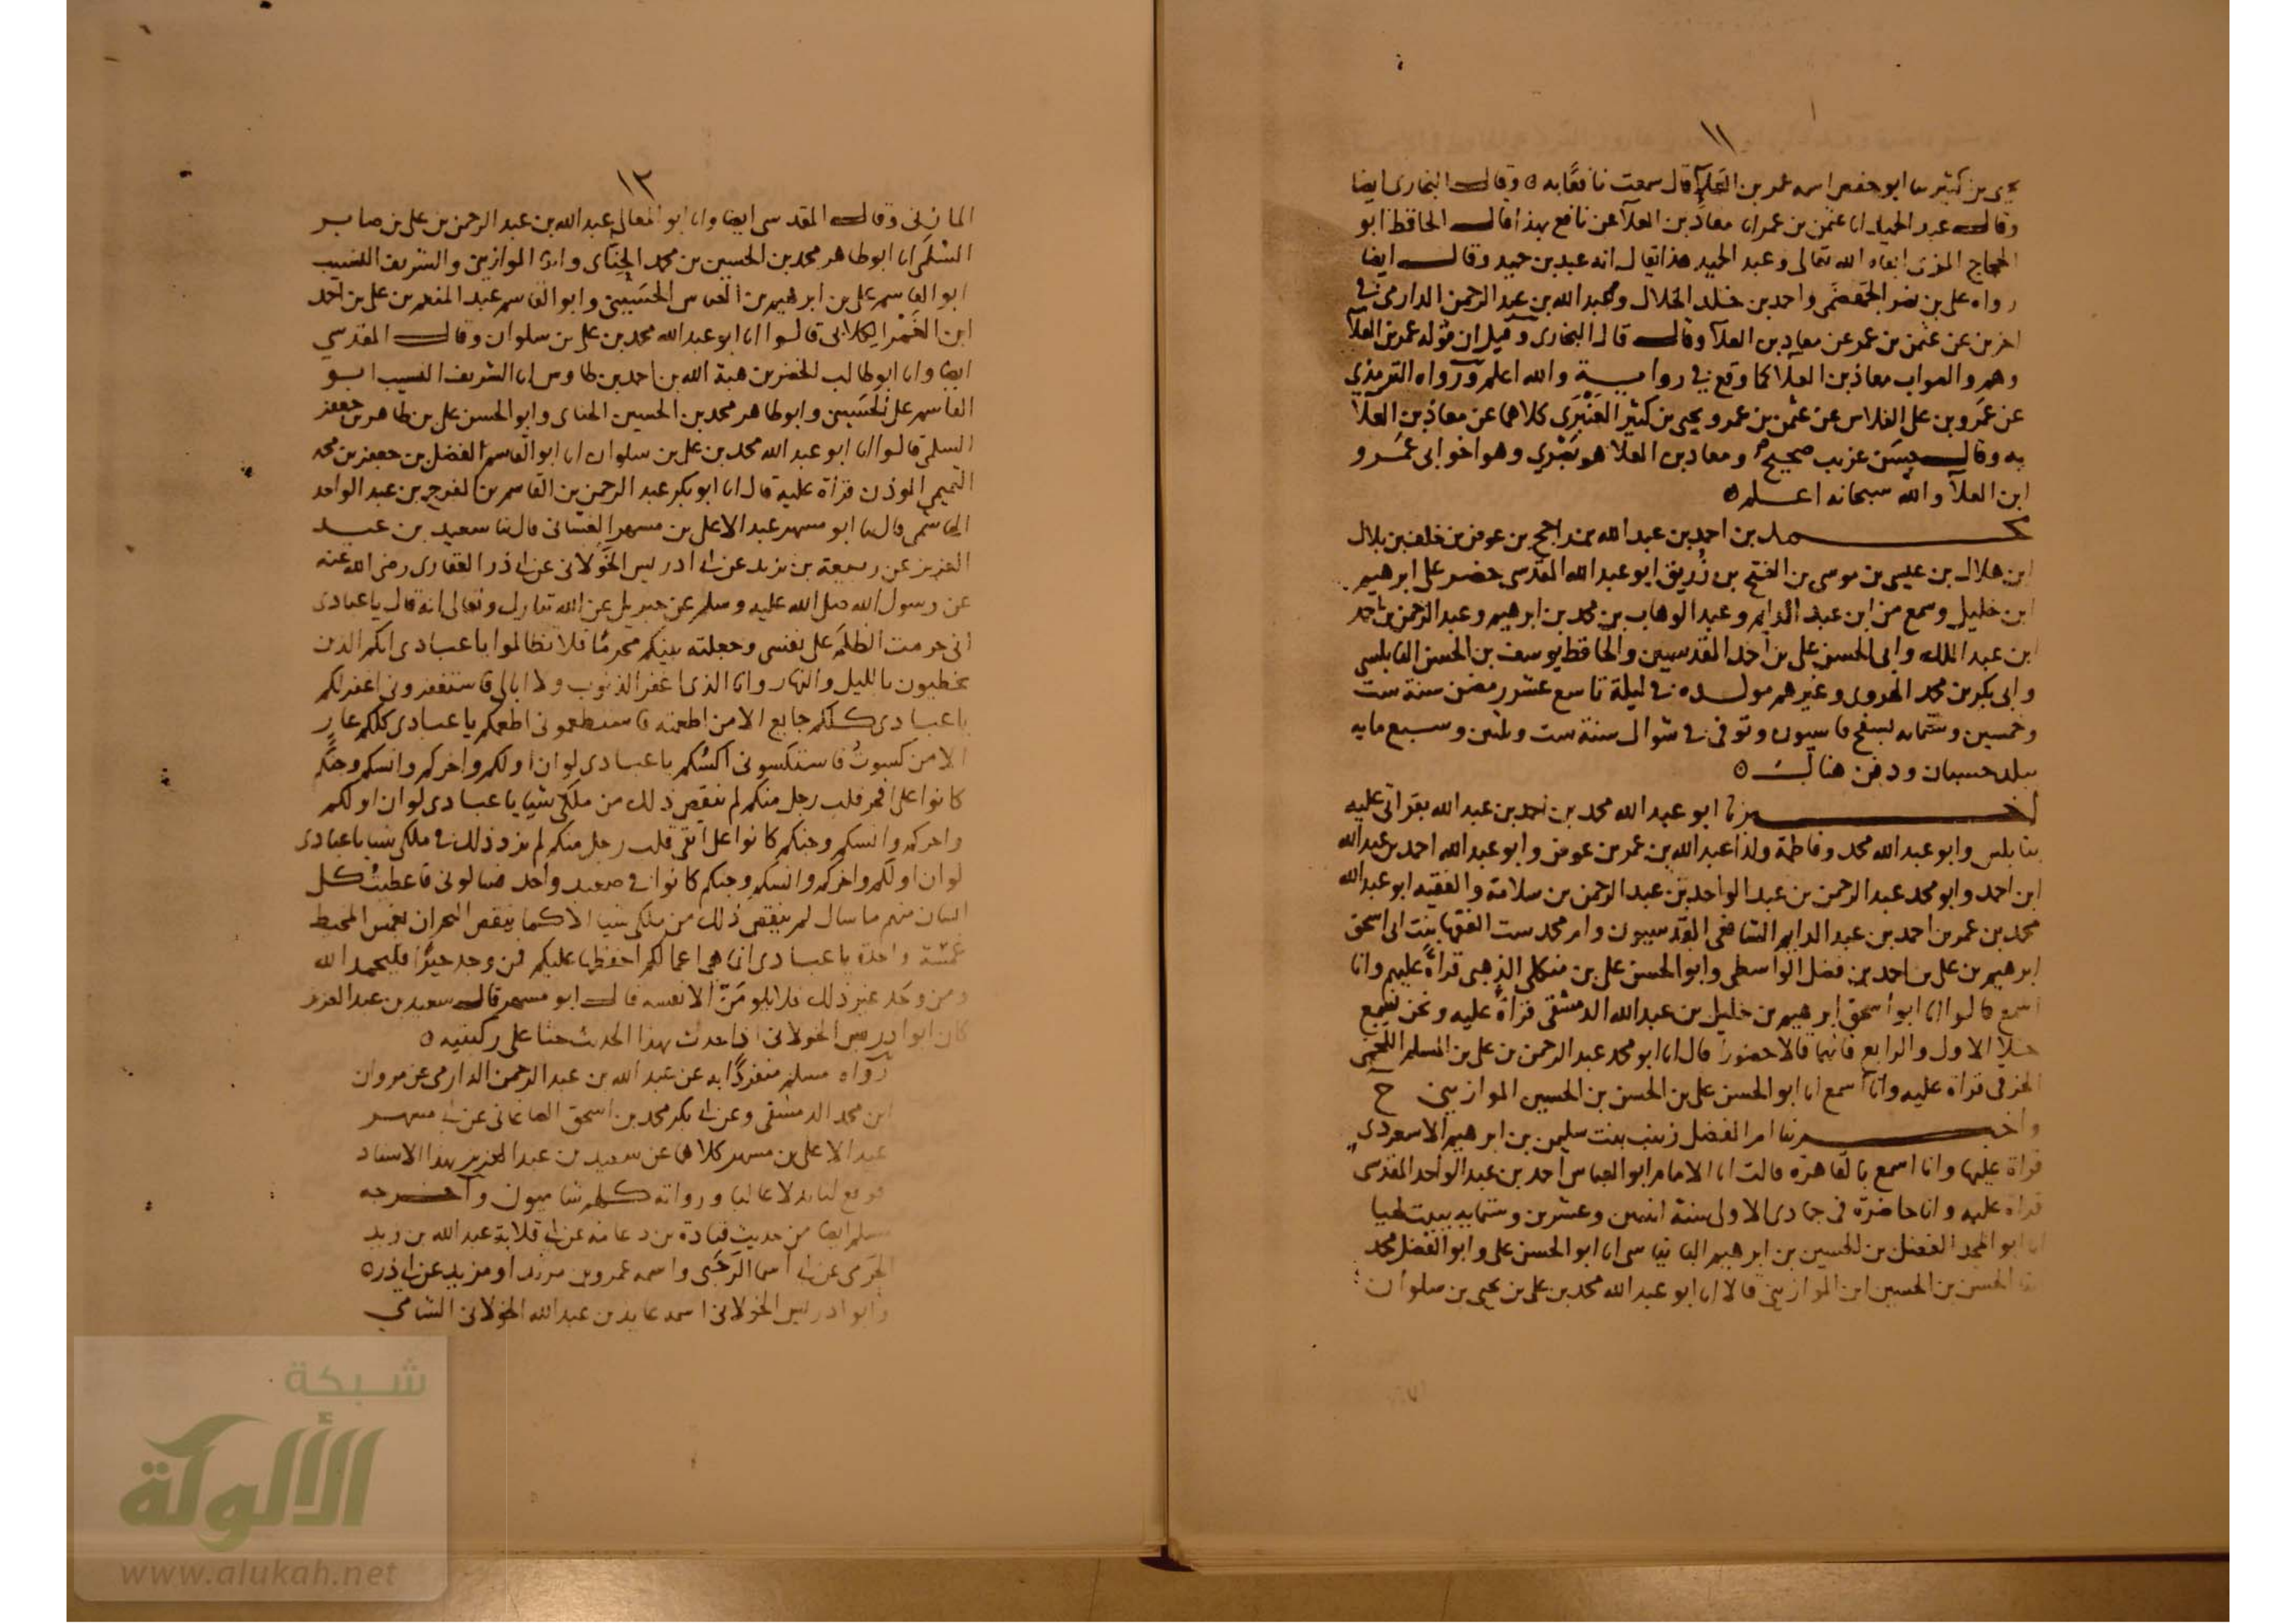 ١١
يحيى بن كثير سا ابو حفص اسمه عمر بن العلآ قال سمعت نافعًا به ٥ وقال البخارى ايضا
وقال عبد الحميد انا عثمن بن عمر انا معاذ بن العلآ عن نافع بهذا قال الحافظ ابو
الحجاج المزى ابقاه الله تعالى وعبد الحميد هذا يقال انه عبد بن حميد وقال ايضا
رواه على بن نصر الجهضمى واحمد بن خلد الخلال وعبد الله بن عبد الرحمن الدارمى فى
اخرين عن عثمن بن عمر عن معاذ بن العلآ وقال قال البخارى وقيل ان قوله عمر بن العلآ
وهم والصواب معاذ بن العلآ كما وقع فى رواية والله اعلم ورواه الترمذي
عن عمرو بن على الفلاس عن عثمن بن عمر و يحيى بن كثير العنبرى كلاهما عن معاذ بن العلآ
به وقال حسن غريب صحيح ومعاذ بن العلا هو بصري وهو اخو ابى عمرو
ابن العلآ والله سبحانه اعلم ٥
محمد بن احمد بن عبد الله بن راجح بن عوض بن خلف بن بلال
ابن هلال بن عيسى بن موسى بن الفتح بن زُريق ابو عبد الله المقدسى حضر على ابرهيم
ابن خليل وسمع من ابن عبد الدايم وعبد الوهاب بن محمد بن ابرهيم وعبد الرحمن بن احمد
ابن عبد الملك وابى الحسن على بن احمد المقدسيين والحافظ يوسف بن الحسن النابلسى
وابى بكر بن محمد الهروى وغيرهم مولده فى ليلة تاسع عشر رمضن سنة ست
وخمسين وستمائه بسفح قاسيون وتوفى فى شوال سنة ست وثلثين وسبع مايه
ببلد حسبان ودفن هنالك ٥
اخبرنا ابو عبد الله محمد بن احمد بن عبد الله بقراتى عليه
بنابلس وابو عبد الله محمد وفاطمة ولدا عبد الله بن عمر بن عوض وابو عبد الله احمد بن عبد الله
ابن احمد وابو محمد عبد الرحمن بن عبد الواحد بن عبد الرحمن بن سلامة والفقيه ابو عبد الله
محمد بن عمر بن احمد بن عبد الدايم الشافعى المقدسيون وام محمد ست الفقها بنت ابى اسحق
ابرهيم بن على بن احمد بن فضل الواسطى وابو الحسن على بن منكلى الذهبى قراةً عليهم وانا
اسمع قالوا انا ابو اسحق ابرهيم بن خليل بن عبد الله الدمشقى قراةً عليه ونحن نسمع
خلا الاول والرابع فانهما قالا حضورًا قال انا ابو محمد عبد الرحمن بن على بن المسلم اللخمى
الخرقى قراة عليه وانا اسمع انا ابو الحسن على بن الحسن بن الحسين الموازينى ح
واخبرتنا ام الفضل زينب بنت سليمن بن ابرهيم الاسعردى
قراة عليها وانا اسمع بالقاهرة قالت انا الامام ابو العباس احمد بن عبد الواحد المقدسى
قراة عليه وانا حاضرة فى جمادى الاولى سنة اثنتين وعشرين وستمايه ببيت لهيا
انا ابو المجد الفضل بن الحسين بن ابرهيم البانياسى انا ابو الحسن على وابو الفضل محمد
ابنا الحسن بن الحسين ابن الموازينى قالا انا ابو عبد الله محمد بن على بن يحيى بن سلوان
١٢
المازنى وقال المقدسى ايضا وانا ابو المعالى عبد الله بن عبد الرحمن بن على بن صابر
السلمى انا ابو طاهر محمد بن الحسين بن محمد الحِنّاى وابن الموازينى والشريف النسيب
ابو القاسم على بن ابرهيم بن العباس الحسينى وابو القاسم عبد المنعم بن على بن احمد
ابن الغَمْر الكلابى قالوا انا ابو عبد الله محمد بن على بن سلوان وقال المقدسي
ايضا وانا ابو طالب الخضر بن هبة الله بن احمد بن طاوس انا الشريف النسيب ابو
القاسم على الحسينى وابو طاهر محمد بن الحسين الحناى وابو الحسن على بن طاهر بن جعفر
السلمى قالوا انا ابو عبد الله محمد بن على بن سلوان انا ابو القاسم الفضل بن جعفر بن محمد
التميمى الموذن قراة عليه قال انا ابو بكر عبد الرحمن بن القاسم بن الفرج بن عبد الواحد
الهاشمى قال سا ابو مسهر عبد الاعلى بن مسهر الغسانى قال سا سعيد بن عبد
العزيز عن ربيعة بن يزيد عن ابى ادريس الخَوْلانى عن ابى ذر الغفارى رضى الله عنه
عن رسول الله صلى الله عليه وسلم عن جبريل عن الله تبارك وتعالى انه قال يا عبادى
انى حرمت الظلم على نفسى وجعلته بينكم محرمًا فلا تظالموا يا عبادى انكم الذين
تخطيون بالليل والنهار وانا الذى اغفر الذنوب ولا ابالى فاستغفرونى اغفر لكم
يا عبادى كلكم جايع الا من اطعمته فاستطعمونى اطعمكم يا عبادى كلكم عارٍ
الا من كسوتُ فاستكسونى اكسكم يا عبادى لو ان اولكم واخركم وانسكم وجنكم
كانوا على افجر قلب رجل منكم لم ينقص ذلك من ملكى شيا يا عبادى لو ان اولكم
واخركم وانسكم وجنكم كانوا على اتقى قلب رجل منكم لم يزد ذلك فى ملكى شيا يا عبادى
لو ان اولكم واخركم وانسكم وجنكم كانوا فى صعيد واحد فسالونى فاعطيتُ كل
انسان منهم ما سال لم ينقص ذلك من ملكى شيا الا كما ينقص البحر ان يغمس المخيط
غمسة واحدة يا عبادى انما هى اعمالكم احفظها عليكم فمن وجد خيرًا فليحمد الله
ومن وجد غير ذلك فلا يلومَنّ الا نفسه قال ابو مسهر قال سعيد بن عبد العزيز
كان ابو ادريس الخولانى اذا حدث بهذا الحديث جثا على ركبتيه ٥
رواه مسلم منفردًا به عن عبد الله بن عبد الرحمن الدارمى عن مروان
ابن محمد الدمشقى وعن ابى بكر محمد بن اسحق الصاغانى عن ابى مسهر
عبد الاعلى بن مسهر كلاهما عن سعيد بن عبد العزيز بهذا الاسناد
فوقع لنا بدلا عاليا ورواته كلهم شاميون واخرجه
مسلم ايضا من حديث قتادة بن دعامة عن ابى قلابة عبد الله بن زيد
الجرمى عن ابى اسما الرحبى واسمه عمرو بن مرثد او مزيد عن ابى ذر ٥
وابو ادريس الخولانى اسمه عايذ بن عبد الله الخولانى الشامي
شبكة
الألوكة
www.alukah.net